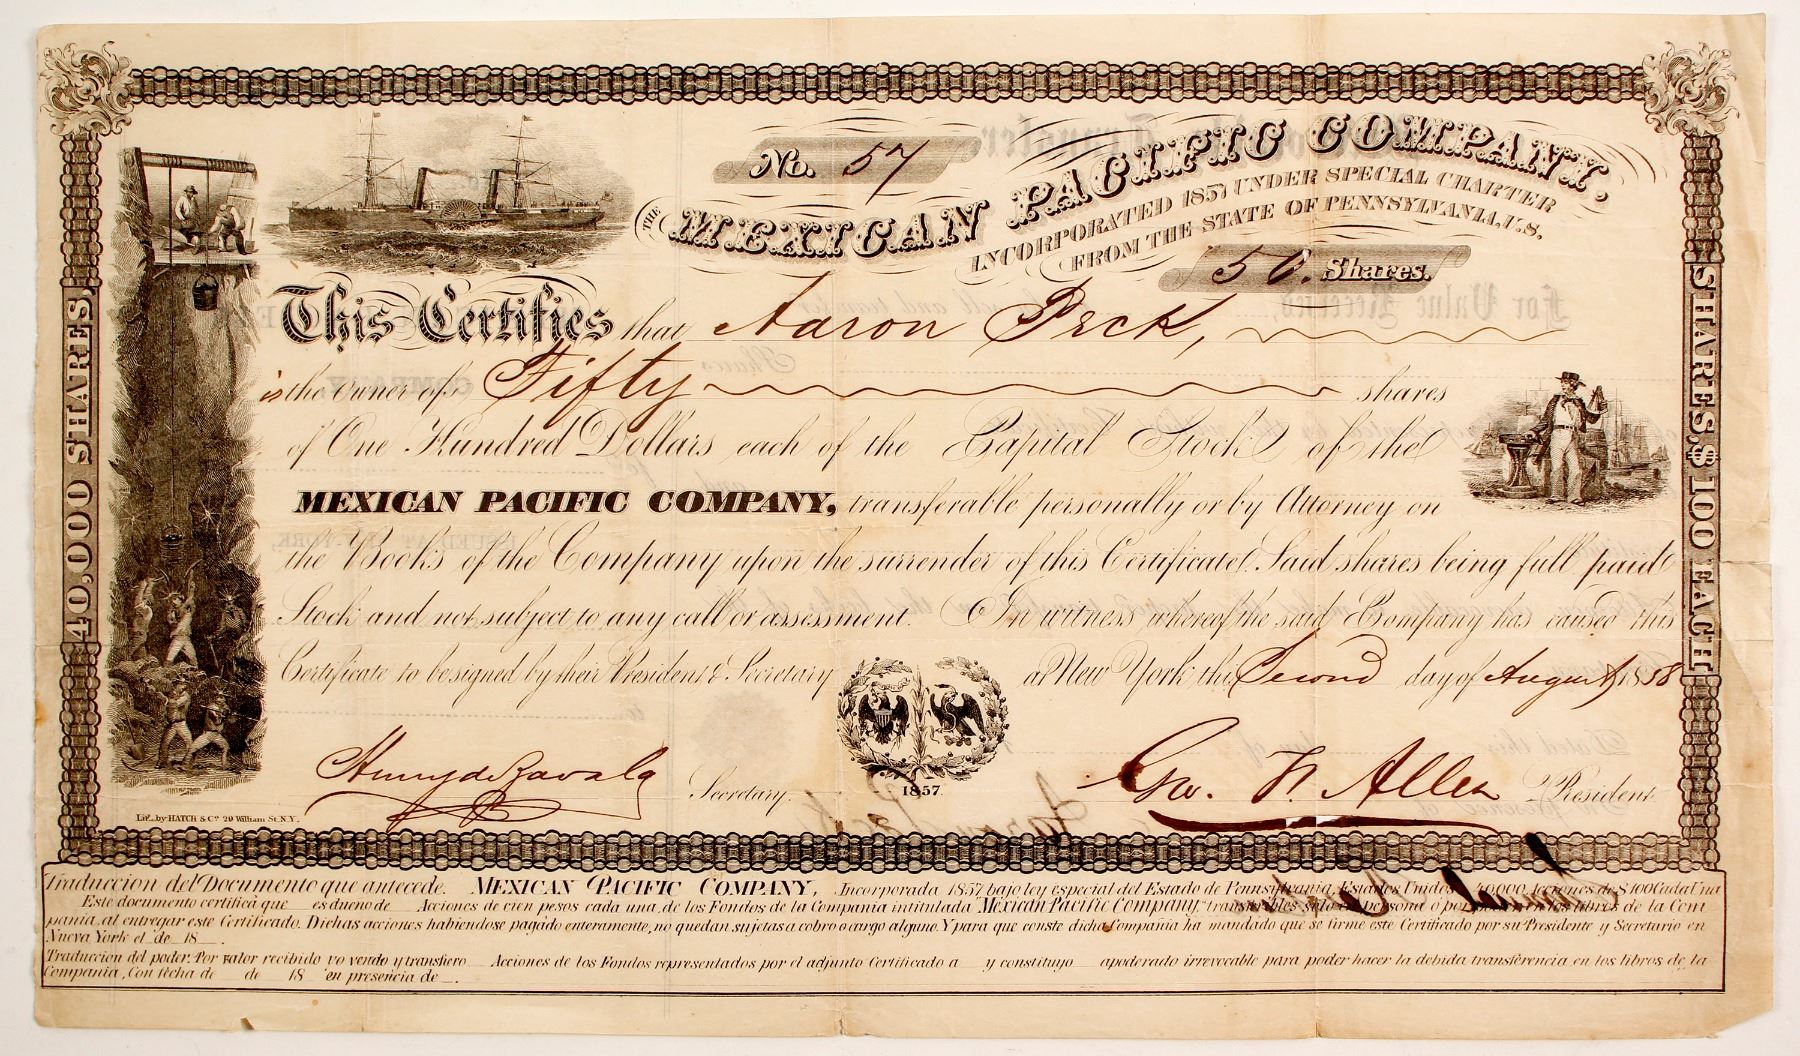 No. 57
THE MEXICAN PACIFIC COMPANY.
INCORPORATED 1857 UNDER SPECIAL CHARTER
FROM THE STATE OF PENNSYLVANIA, U.S.
50. Shares.
40,000 SHARES,
SHARES, $100 EACH
This Certifies that Aaron Peck,
is the Owner of Fifty shares
of One Hundred Dollars each of the Capital Stock of the
MEXICAN PACIFIC COMPANY, transferable personally or by Attorney on
the Books of the Company upon the surrender of this Certificate. Said shares being full paid
Stock and not subject to any call or assessment. In witness whereof the said Company has caused this
Certificate to be signed by their President & Secretary at New York the Second day of August 1858
Henry de Zavala Secretary.
1857.
Geo. W. Allen President
Lit. by HATCH & Co 29 William St. N.Y.
Traduccion del Documento que antecede. MEXICAN PACIFIC COMPANY, Incorporada 1857 bajo ley especial del Estado de Pennsylvania, Estados Unidos 40000 Acciones de $100 Cada Una
Este documento certifica que es dueno de Acciones de cien pesos cada una, de los Fondos de la Compania intitulada "Mexican Pacific Company," transferibles solo en persona o por en los libros de la Com
pania, al entregar este Certificado. Dichas acciones habiendose pagado enteramente, no quedan sujetas a cobro o cargo alguno. Y para que conste dicha Compania ha mandado que se firme este Certificado por su Presidente y Secretario en
Nueva York el de 18 .
Traduccion del poder. Por valor recibido yo vendo y transfiero Acciones de los Fondos representados por el adjunto Certificado a y constituyo apoderado irrevocable para poder hacer la debida transferencia en los libros de la
Compania, Con fecha de de 18 en presencia de .